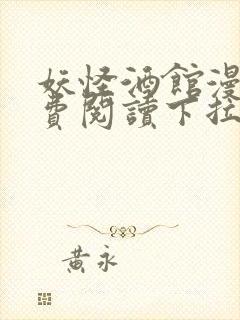 妖怪酒館漫
費閱讀下拉
黃永